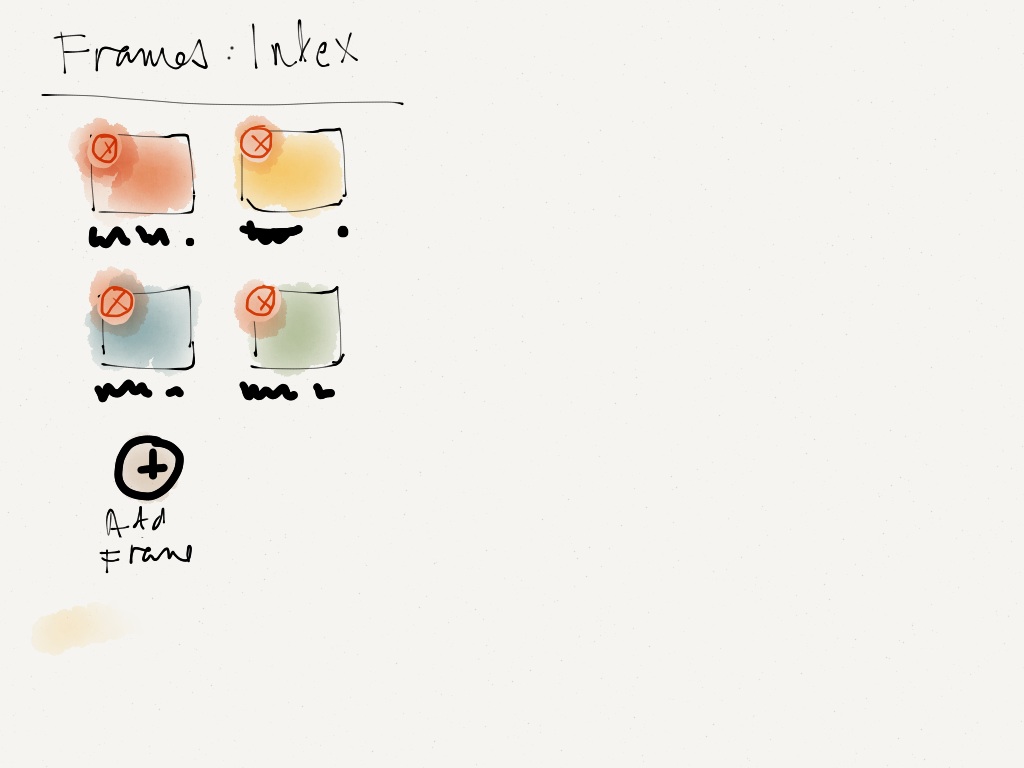 Frames: Inkex
Add
Frame